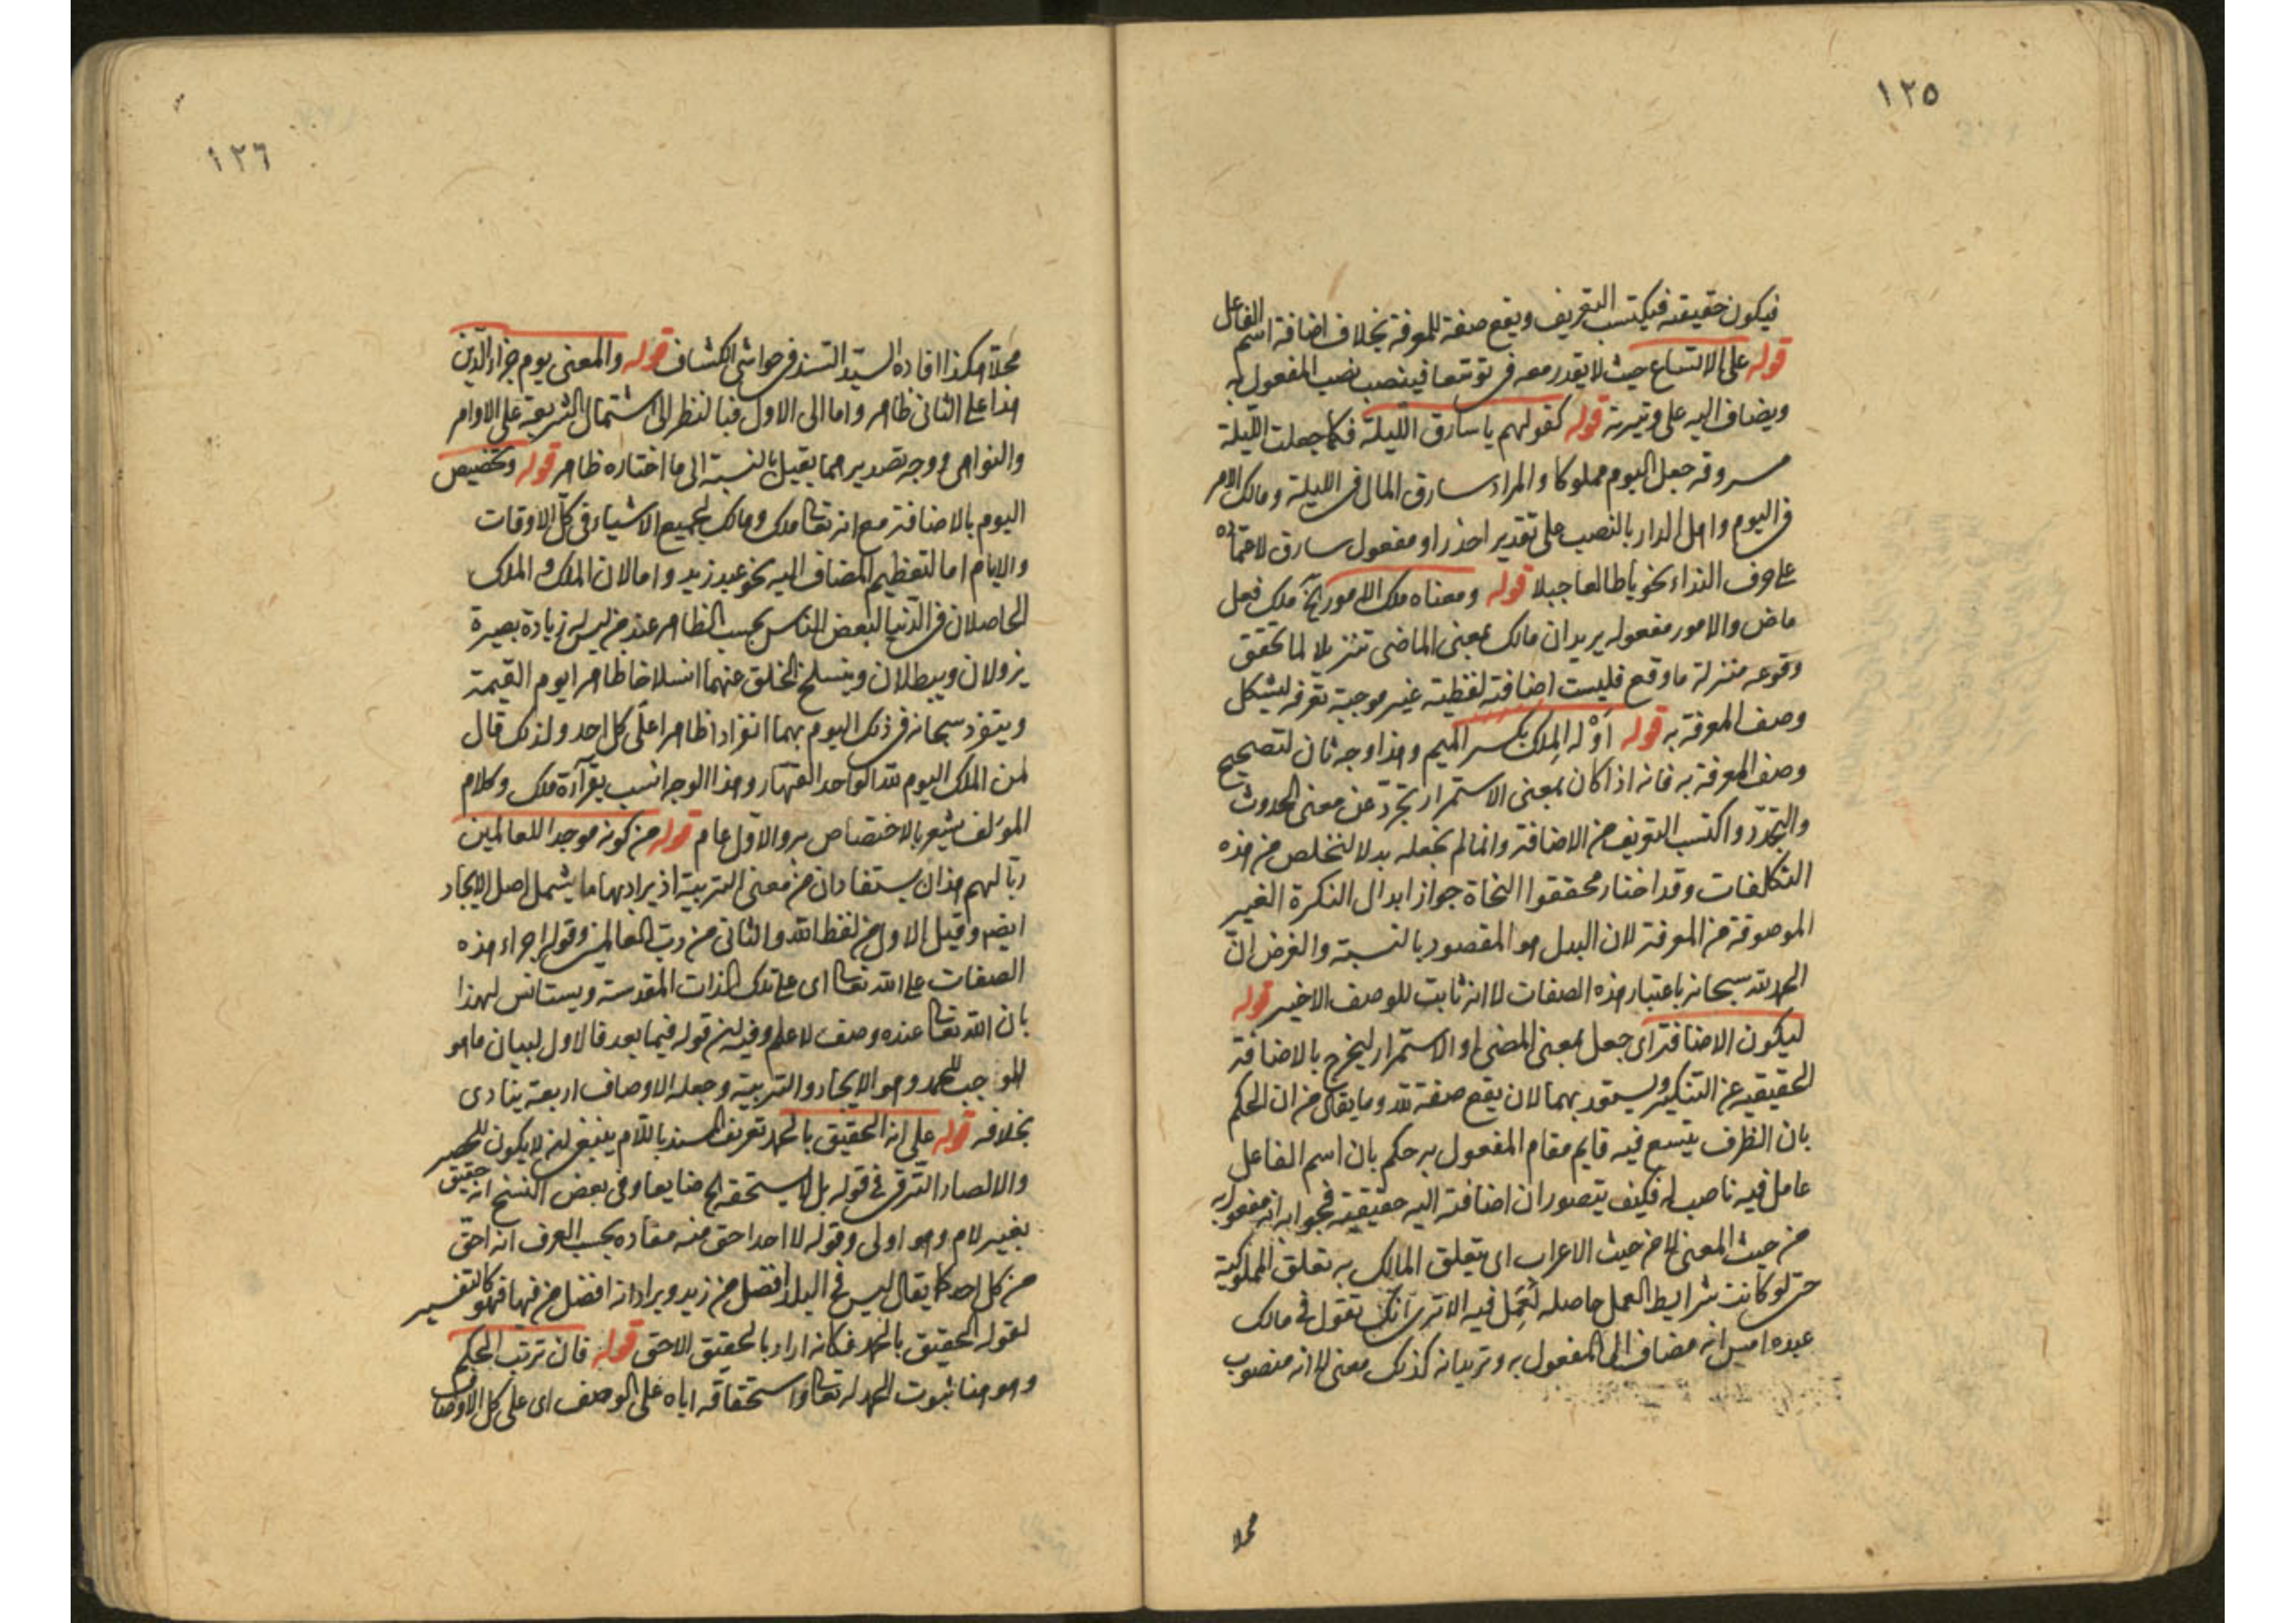 ١٢٥
فيكون حقيقته فيكتسب التعريف ويقع صفة للمعرفة بخلاف اضافة اسم الفاعل
قوله على الاتساع حيث لا يقدر معه في توسعا فينصب نصب المفعول به
ويضاف اليه على وتيرته قوله كقولهم يا سارق الليلة فكما جعلت الليلة
مسروقة جعل اليوم مملوكا والمراد سارق المال في الليلة ومالك الامر
في اليوم واهل الدار بالنصب على تقدير احذر او مفعول سارق لاعتماده
على حرف النداء نحو يا طالعا جبلا قوله ومعناه ملك الامور الخ ملك فعل
ماض والامور مفعوله يريد ان مالك بمعنى الماضي تنزيلا لما تحقق
وقوعه منزلة ما وقع فليست اضافته لفظية غير موجبة تعرفه ليشكل
وصف المعرفة به قوله او له الملك بكسر الميم وهذا وجه ثان لتصحيح
وصف المعرفة به فانه اذا كان بمعنى الاستمرار تجرد عن معنى الحدوث
والتجدد واكتسب التعريف من الاضافة وانما لم نجعله بدلا لنتخلص من هذه
التكلفات وقد اختار محققوا النحاة جواز ابدال النكرة الغير
الموصوفة من المعرفة لان البدل هو المقصود بالنسبة والغرض ان
الحمد لله سبحانه باعتبار هذه الصفات لا انه ثابت للوصف الاخير قوله
ليكون الاضافة اى جعل بمعنى المضي او الاستمرار ليخرج بالاضافة
الحقيقيه عن التنكير ويستعد بهما لان يقع صفة لله وما يقال من ان الحكم
بان الظرف يتسع فيه قايم مقام المفعول به حكم بان اسم الفاعل
عامل فيه ناصب له فكيف يتصور ان اضافته اليه حقيقية فجوابه انه مفعول به
من حيث المعنى لا من حيث الاعراب اى يتعلق المالك به تعلق المملوكية
حتى لو كانت شرايط العمل حاصله لعمل فيه الا ترى انك تقول في مالك
عبده امس انه مضاف الى المفعول به وتريد انه كذلك معنى لا انه منصوب
محلا
١٢٦
محلا هكذا افاده السيد السند في حواشي الكشاف قوله والمعنى يوم جزاء الدين
هذا على الثاني ظاهر واما الى الاول فبالنظر الى اشتمال الشريعة على الاوامر
والنواهي ووجه تصديرهما بقيل بالنسبة الى ما اختاره ظاهر قوله وتخصيص
اليوم بالاضافة مع انه تعالى ملك ومالك لجميع الاشياء في كل الاوقات
والايام اما لتعظيم المضاف اليه نحو عبد زيد واما لان الملك والملك
الحاصلان في الدنيا لبعض الناس بحسب الظاهر عند من ليس له زيادة بصيرة
يزولان ويبطلان وينسلخ الخلق عنهما انسلاخا ظاهرا يوم القيمة
وينفرد سبحانه في ذلك اليوم بهما انفرادا ظاهرا على كل احد ولذلك قال
لمن الملك اليوم لله الواحد القهار وهذا الوجه انسب بقراءة ملك وكلام
المؤلف يشعر بالاختصاص به والاول عام قوله من كونه موجدا للعالمين
ربا لهم هذان يستفادان من معنى التربية اذ يراد بها ما يشمل اصل الايجاد
ايضا وقيل الاول من لفظ الله والثاني من رب العالمين وقوله اجراء هذه
الصفات على الله تعالى اى على تلك الذات المقدسة ويستانس لهذا
بان الله تعالى عنده وصف لا علم وفيه ان قوله فيما بعد فالاول لبيان ما هو
الموجب للحمد وهو الايجاد والتربية وجعله الاوصاف اربعة ينادى
بخلافه قوله على انه الحقيق بالحمد تعريف المسند باللام ينبغي ان لا يكون للحصر
والا لصار الترقي في قوله بل لا يستحقه الخ ضايعا وفي بعض النسخ انه حقيق
بغير لام وهو اولى وقوله لا احد احق منه مفاده بحسب العرف انه احق
من كل احد كما يقال ليس في البلد افضل من زيد ويراد انه افضل من فيها فهو كالتفسير
لقوله الحقيق بالحمد فكانه اراد بالحقيق الاحق قوله فان ترتب الحكم
وهو هنا ثبوت الحمد له تعالى واستحقاقه اياه على الوصف اى على كل الاوصاف